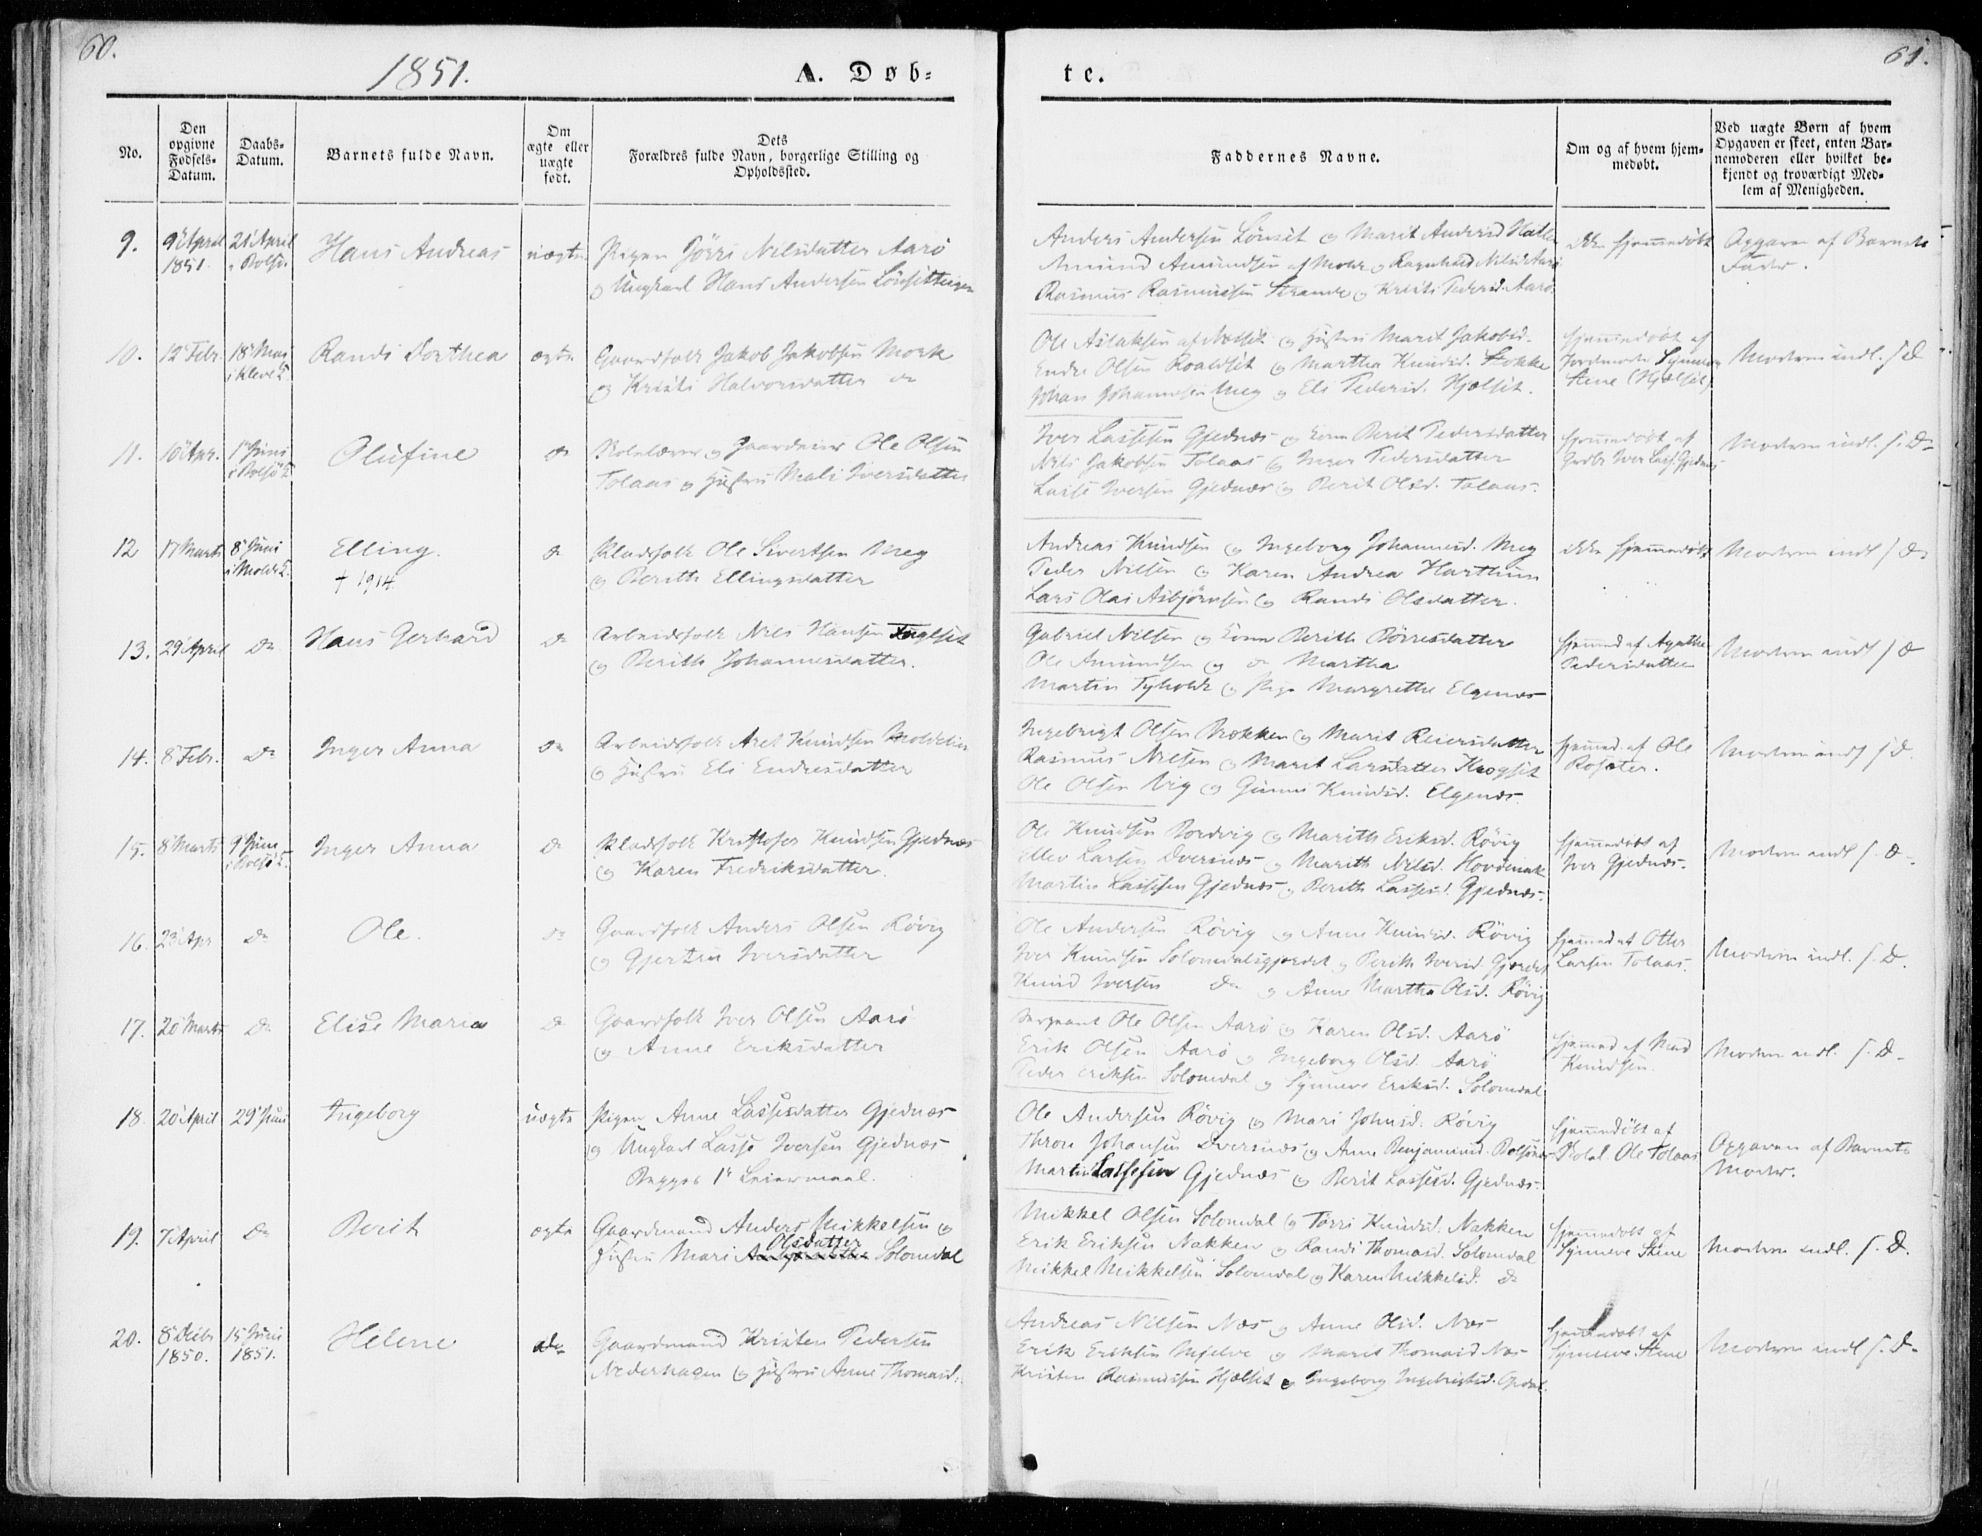 60.
1851.
A. Døb=
te.
61.
No.
Den opgivne Fødsels-Datum.
Daabs-Datum.
Barnets fulde Navn.
Om ægte eller uægte født.
Dets Forældres fulde Navn, borgerlige Stilling og Opholdssted.
Faddernes Navne.
Om og af hvem hjemmedøbt.
Ved uægte Børn af hvem Opgaven er skeet, enten Barnemoderen eller hvilket bekjendt og troværdigt Medlem af Menigheden.
9.
9 April 1851
21 April
Hans Andreas
uægte
Pigen Nilsdatter Aarö
og Ungkarl Hans Andersen
Anders Andersen Lönset og Marit Andersd
Amund Amundsen af Molde og Ragnhild Nilsd Aarö
Rasmus Rasmussen Strande og Kristi Pedersd. Aarö
ikke hjemmedöbt
Opgaven af Barnets
Fader.
10.
12 Febr.
18 Mai
i Kleve K
Randi Dorthea
ægte
Gaardfolk Jakob Jakobsen Mork
og Kristi Halvorsdatter do
Ole Aslaksen og Hustru Marit Jakobsd.
Endre Olsen Roaldset og Martha Knudsd.
Johan Johannesen Meg og Eli Pedersd. Hjelset.
hjemmedöbt af
Jordmoder Synneve
Stene (Hjelset)
Moderen indl. f. D
11.
10 Apr.
1 Juni
i Bolsö K
Olufine
do
Skolelærer og Gaardeier Ole Olsen
Tolaas og Hustru Mali Iversdatter
Iver Lassesen Gjednæs og Kone Berit Pedersdatter
Nils Jakobsen Tolaas og Inger Pedersdatter
Lasse Iversen Gjednæs og Berit Olsd. Tolaas.
hjemmedöbt af
Iver Lass. Gjednæs
Moderen indl. f. D
12
17 Marts
8 Juni
i Molde K.
Elling.
† 1914.
do
Pladsfolk Ole Sivertsen Meg
og Berith Ellingsdatter
Andreas Knudsen og Ingeborg Johannesd. Meg
Peder Nilsen og Karen Andrea Harthun
Lars Olai Asbjörnsen og Randi Olsdatter.
ikke hjemmedöbt
Moderen indl f D
13.
29 April
do
Hans Gerhard
do
Arbeidsfolk Nils Hansen Fuglset
og Berith Johannesdatter.
Gabriel Nilsen og Kone Berith Börresdatter
Ole Amundsen og do Martha
Martin Tyholdt og Pige Margrethe Elgenæs
hjemmed af Agathe
Pedersdatter
Moderen indl f D
14.
8 Febr.
do
Inger Anna
do
Arbeidsfolk Knudsen Moldelien
og Hustru Eli Endresdatter
Ingebrigt Olsen Nokken og Marit Reiersdatter
Rasmus Nilsen og Marit Larsdatter Krogset
Ole Olsen Vig og Gunni Knudsd. Elgenæs.
hjemmed. af Ole
Moderen indl f D
15.
8 Marts
9 Juni
i Bolsö K.
Inger Anna
do
Pladsfolk Kristofer Knudsen Gjednæs
og Karen Fredriksdatter.
Ole Knudsen Bordvig og Marith Eriksd. Rövig
Ellev Larsen Dversnæs og Marith Nilsd. Hovdenak
Martin Lassesen Gjednæs og Berith Lassesd. Gjednæs.
hjemmedöbt af
Iver Gjednæs.
Moderen indl f. D.
16.
23 Apr
do
Ole.
do
Gaardfolk Anders Olsen Rövig
og Gjertru Iversdatter
Ole Andersen Rövig og Anne Knudsd. Rövig
Iver Knudsen Solomdalsgjerdet og Berith Iversd Gjerdet
Knud Iversen do og Anne Martha Olsd. Rövig
hjemmed af Otter
Larsen Tolaas.
Moderen indl. f. D.
17.
20 Marts
do
Elise Maria
do
Gaardfolk Iver Olsen Aarö
og Anne Eriksdatter
Sergeant Ole Olsen Aarö og Karen Olsd. Aarö
Erik Olsen Aarö og Ingeborg Olsd. Aarö
Peder Eriksen Solomdal og Synneve Eriksd. Solomdal
hjemmed af
Knudsen.
Moderen indl. f. D.
18.
20 April
29 Juni
Ingeborg
uægte
Pigen Anne Lassesdatter Gjednæs
og Ungkarl Lasse Iversen Gjednæs
Begges 1te Leiermaal.
Ole Andersen Rövig og Mari Johnsd. Rövig
Thron Johansen Dversnæs og Anne Benjaminsd. Bolsönæs
Martin Lassesen Gjednæs og Berit Lassesd. Gjednæs.
hjemmedöbt af
Skolel. Ole Tolaas
Opgaven af Barnets
Moder.
19.
7 April
do
Berit
ægte
Gaardmand Anders Mikkelsen og
Olsdatter
Hustru Mari Solomdal
Mikkel Olsen Solomdal og Törri Knudsd. Nakken
Erik Eriksen Nakken og Randi Thomasd. Solomdal
Mikkel Mikkelsen Solomdal og Karen Mikkelsd. do
hjemmedöbt af
Synneve Stene
Moderen indl. f. D.
20.
8 Decbr 1850.
15 Juni 1851.
Helene
do
Gaardmand Kristen Pedersen
Nederhagen og Hustru Anne Thomasd.
Andreas Nilsen Næs og Anne Olsd. Næs
Erik Eriksen Mjelve og Marit Thomasd Næs
Kristen Rasmussen Hjelset og Ingeborg Ingebrigtsd. Opdal.
hjemmedöbt af
Synneve Stene
Moderen indl f. D.